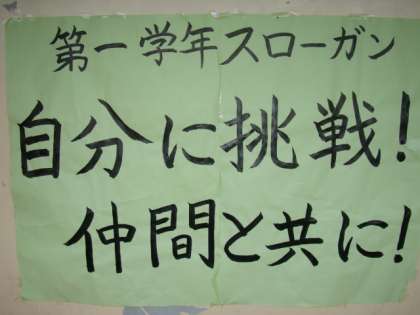 第一学年スローガン
自分に挑戦!
仲間と共に!